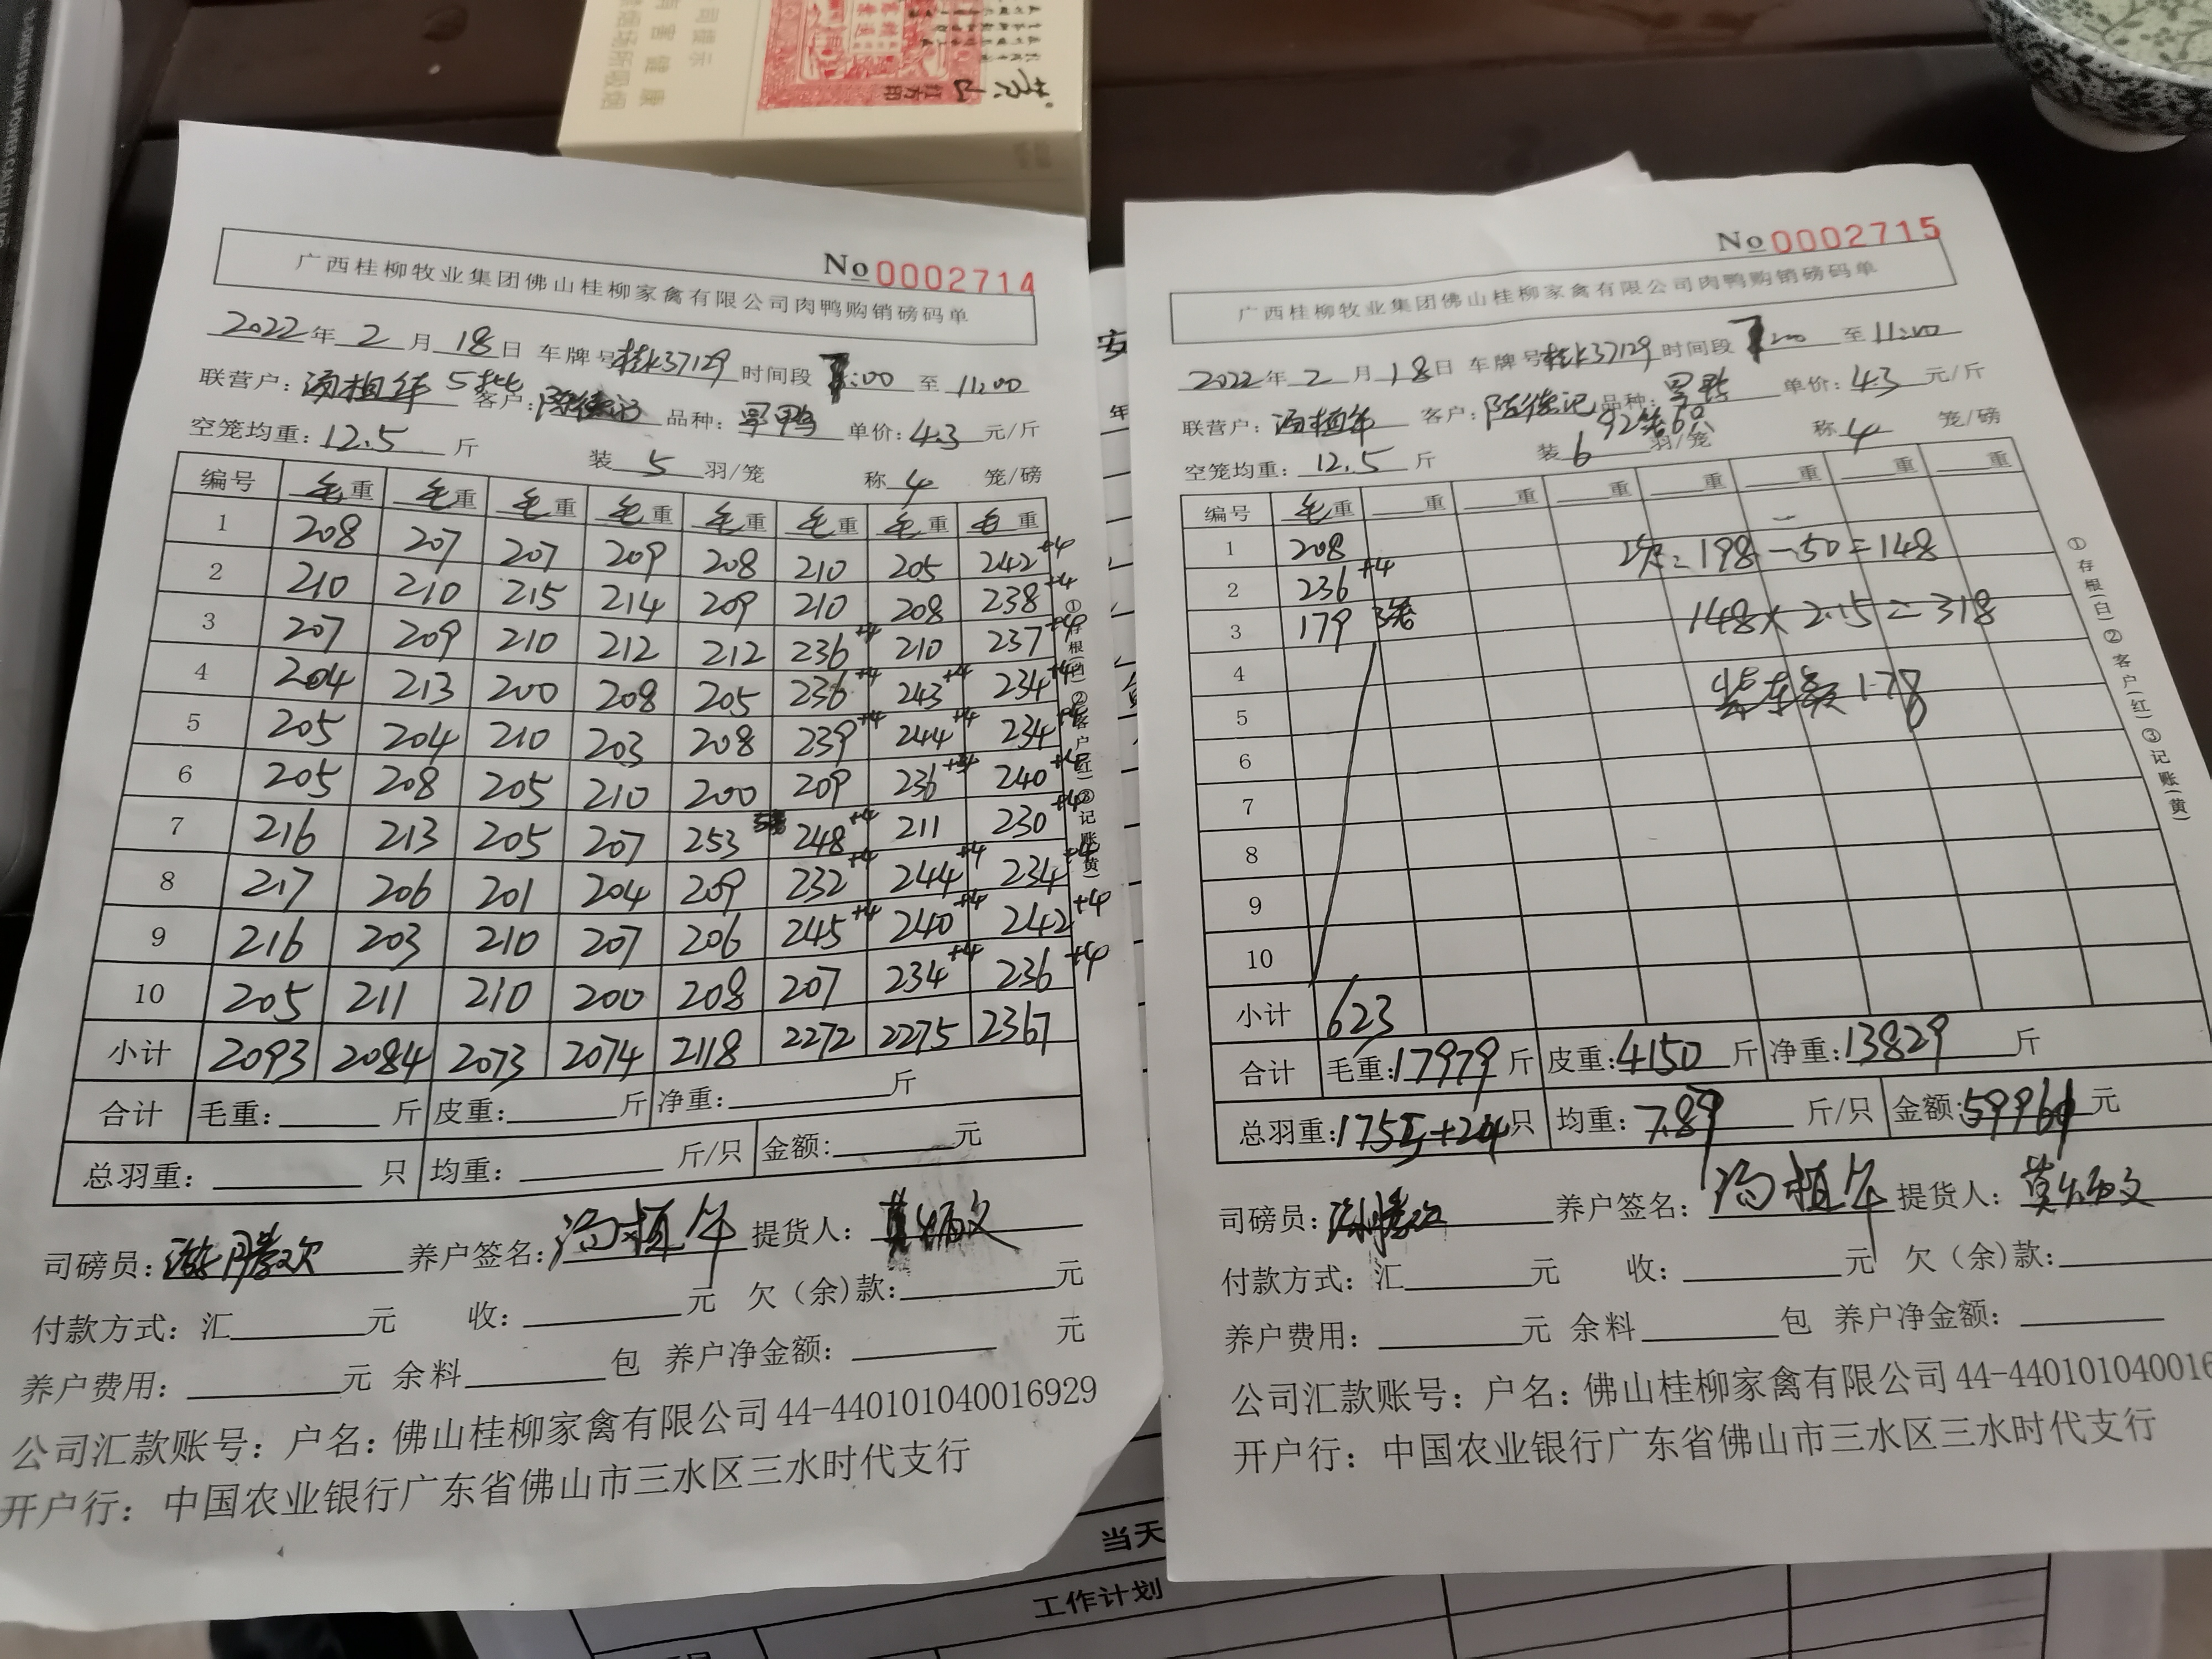 黄山
红方印
No 0002714
广西桂柳牧业集团佛山桂柳家禽有限公司肉鸭购销磅码单
2022年 2 月 18 日 车牌号 桂K37129 时间段 7:00 至 11:00
联营户: 汤植年 5批 客户: 陈徐记 品种: 单价: 4.3 元/斤
空笼均重: 12.5 斤 装 5 羽/笼 称 4 笼/磅
编号 毛重 毛重 毛重 毛重 毛重 毛重 毛重 毛重
1 208 207 207 209 208 210 205 242+4
2 210 210 215 214 209 210 208 238+4
3 207 209 210 212 212 236+4 210 237+4
4 204 213 200 208 205 236+4 243+4 234+4
5 205 204 210 203 208 239+4 244+4 234+4
6 205 208 205 210 200 209 236+4 240+4
7 216 213 205 207 253 248+4 211 230+4
8 217 206 201 204 209 232+4 244+4 234+4
9 216 203 210 207 206 245+4 240+4 242+4
10 205 211 210 200 208 207 234+4 236+4
小计 2093 2084 2073 2074 2118 2272 2275 2367
合计 毛重: 斤 皮重: 斤 净重: 斤
总羽重: 只 均重: 斤/只 金额: 元
①存根(白)②客户(红)③记账(黄)
司磅员: 养户签名: 汤植年 提货人:
付款方式: 汇 元 收: 元 欠(余)款: 元
养户费用: 元 余料 包 养户净金额: 元
公司汇款账号: 户名: 佛山桂柳家禽有限公司 44-440101040016929
开户行: 中国农业银行广东省佛山市三水区三水时代支行
No 0002715
广西桂柳牧业集团佛山桂柳家禽有限公司肉鸭购销磅码单
2022年 2 月 18 日 车牌号 桂K37129 时间段 7:00 至 11:00
联营户: 汤植年 客户: 陈徐记 品种: 单价: 4.3 元/斤
92笼6只
空笼均重: 12.5 斤 装 6 羽/笼 称 4 笼/磅
编号 毛重 重 重 重 重 重 重 重
1 208
2 236+4
3 179 3笼
4
5
6
7
8
9
10
次: 198-50=148
148×2.15=318
178
小计 623
合计 毛重: 17979 斤 皮重: 4150 斤 净重: 13829 斤
总羽重: 1751+204 只 均重: 7.89 斤/只 金额: 59961 元
①存根(白)②客户(红)③记账(黄)
司磅员: 养户签名: 汤植年 提货人:
付款方式: 汇 元 收: 元 欠(余)款:
养户费用: 元 余料 包 养户净金额:
公司汇款账号: 户名: 佛山桂柳家禽有限公司 44-440101040016
开户行: 中国农业银行广东省佛山市三水区三水时代支行
当天
工作计划